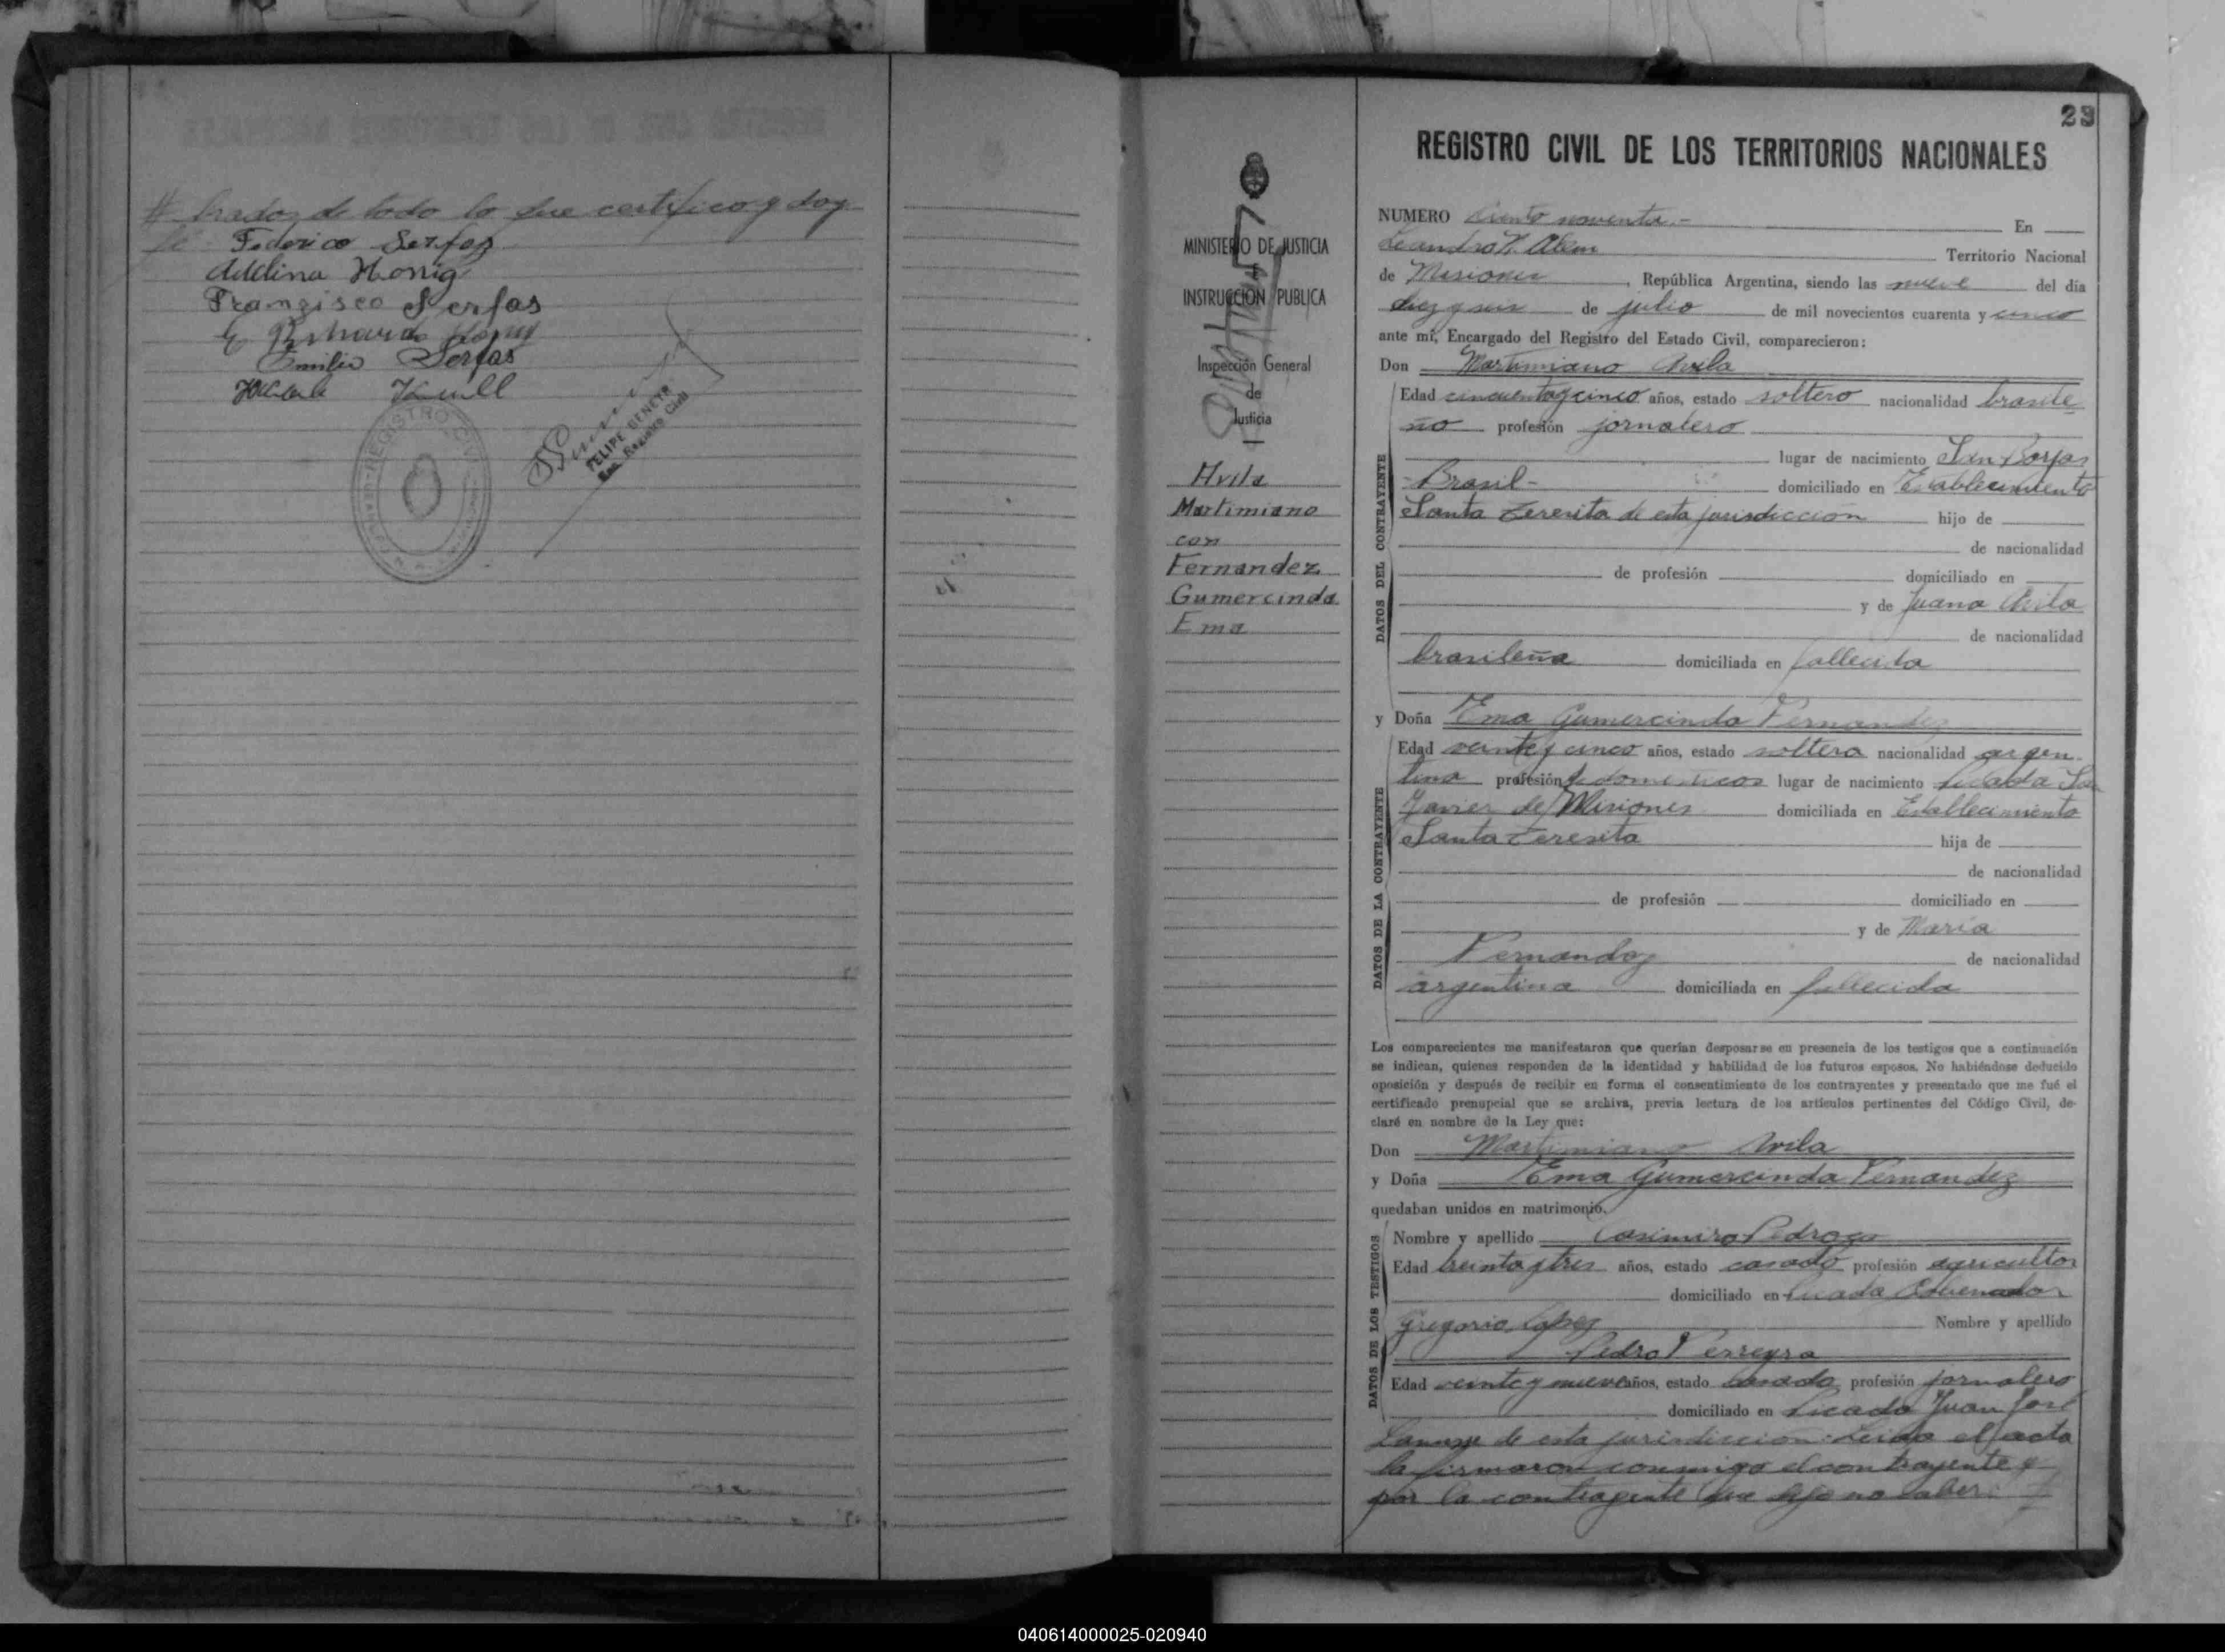 # brados de todo lo que certifico y doy
fé. Federico Serfas
Adelina Honig
Franzisco Serfas
E
Emilio Serfas
Knull
REGISTRO CIVIL
FELIPE BENEYR
Enc. Registro Civil
23
REGISTRO CIVIL DE LOS TERRITORIOS NACIONALES
MINISTERIO DE JUSTICIA
INSTRUCCION PUBLICA
Inspección General
de
Justicia
Avila
Martimiano
con
Fernandez
Gumercinda
Ema
NUMERO Ciento noventa.- En
Leandro N. Alem Territorio Nacional
de Misiones, República Argentina, siendo las nueve del día
diez y seis de julio de mil novecientos cuarenta y cinco
ante mí, Encargado del Registro del Estado Civil, comparecieron:
Don Martimiano Avila
DATOS DEL CONTRAYENTE
Edad cincuenta y cinco años, estado soltero nacionalidad brasile-
ño profesión jornalero
lugar de nacimiento San Borjas
-Brasil- domiciliado en Establecimiento
Santa Teresita de esta jurisdicción hijo de
de nacionalidad
de profesión domiciliado en
y de Juana Avila
de nacionalidad
brasileña domiciliada en fallecida
y Doña Ema Gumercinda Fernandez
DATOS DE LA CONTRAYENTE
Edad veinte y cinco años, estado soltera nacionalidad argen-
tina profesión q. domesticos lugar de nacimiento Picada San
Javier de Misiones domiciliada en Establecimiento
Santa Teresita hija de
de nacionalidad
de profesión domiciliado en
y de María
Fernandez de nacionalidad
argentina domiciliada en fallecida
Los comparecientes me manifestaron que querían desposarse en presencia de los testigos que a continuación
se indican, quienes responden de la identidad y habilidad de los futuros esposos. No habiéndose deducido
oposición y después de recibir en forma el consentimiento de los contrayentes y presentado que me fué el
certificado prenupcial que se archiva, previa lectura de los artículos pertinentes del Código Civil, de-
claré en nombre de la Ley que:
Don Martimiano Avila
y Doña Ema Gumercinda Fernandez
quedaban unidos en matrimonio.
DATOS DE LOS TESTIGOS
Nombre y apellido Casimiro Pedrozo
Edad treinta y tres años, estado casado profesión agricultor
domiciliado en Picada Gobernador
Gregorio Lopez Nombre y apellido
Pedro Ferreyra
Edad veinte y nueve años, estado casado profesión jornalero
domiciliado en Picada Juan José
Lanusse de esta jurisdiccion. Leida el acta
la firmaron conmigo el contrayente y
por la contrayente que dijo no saber #
040614000025-020940